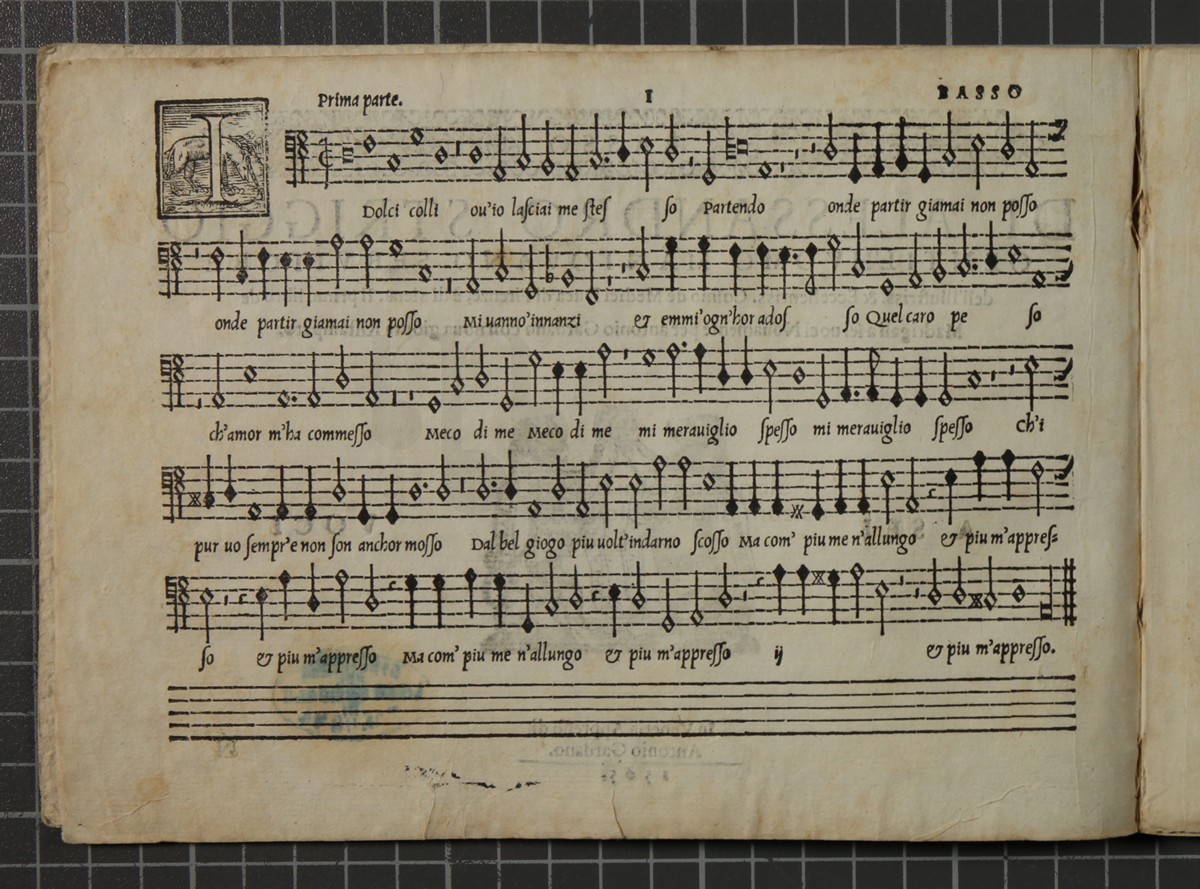 Prima parte. 1 BASSO
I Dolci colli ou'io lasciai me stes so Partendo onde partir giamai non posso
onde partir giamai non posso Mi uanno'innanzi & emmi'ogn'hor ados so Quel caro pe so
ch'amor m'ha commesso Meco di me Meco di me mi merauiglio spesso mi merauiglio spesso Ch'i
pur uo sempr'e non son anchor mosso Dal bel giogo piu uolt'indarno scosso Ma com' piu me n'allungo & piu m'appres=
so & piu m'appresso Ma com' piu me n'allungo & piu m'appresso ij & piu m'appresso.